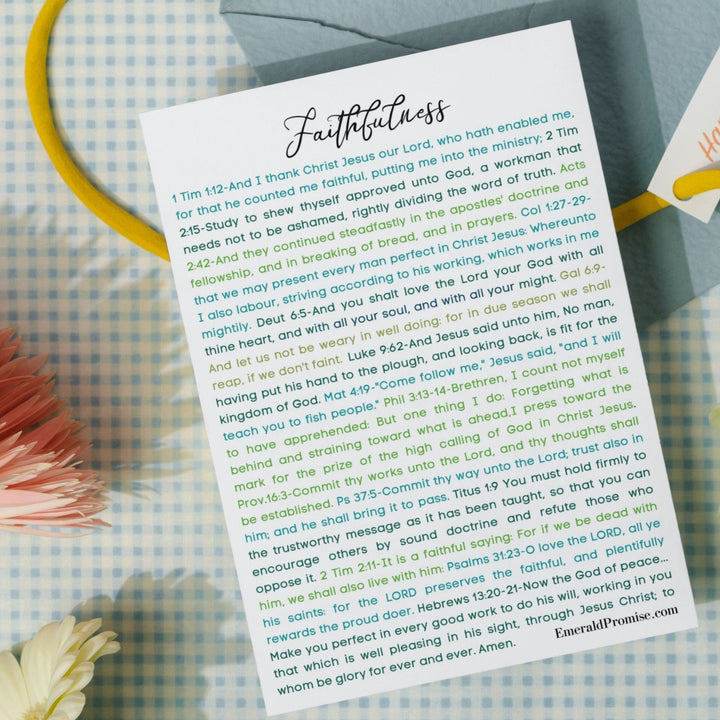 Faithfulness
1 Tim 1:12-And I thank Christ Jesus our Lord, who hath enabled me,
for that he counted me faithful, putting me into the ministry; 2 Tim
2:15-Study to shew thyself approved unto God, a workman that
needs not to be ashamed, rightly dividing the word of truth. Acts
2:42-And they continued steadfastly in the apostles' doctrine and
fellowship, and in breaking of bread, and in prayers. Col 1:27-29-
that we may present every man perfect in Christ Jesus: Whereunto
I also labour, striving according to his working, which works in me
mightily. Deut 6:5-And you shalt love the Lord your God with all
thine heart, and with all your soul, and with all your might. Gal 6:9-
And let us not be weary in well doing: for in due season we shall
reap, if we don't faint. Luke 9:62-And Jesus said unto him, No man,
having put his hand to the plough, and looking back, is fit for the
kingdom of God. Mat 4:19-"Come follow me," Jesus said, "and I will
teach you to fish people." Phil 3:13-14-Brethren, I count not myself
to have apprehended: But one thing I do: Forgetting what is
behind and straining toward what is ahead,I press toward the
mark for the prize of the high calling of God in Christ Jesus.
Prov.16:3-Commit thy works unto the Lord, and thy thoughts shall
be established. Ps 37:5-Commit thy way unto the Lord; trust also in
him; and he shall bring it to pass. Titus 1:9 You must hold firmly to
the trustworthy message as it has been taught, so that you can
encourage others by sound doctrine and refute those who
oppose it. 2 Tim 2:11-It is a faithful saying: For if we be dead with
him, we shall also live with him: Psalms 31:23-O love the LORD, all ye
his saints: for the LORD preserves the faithful, and plentifully
rewards the proud doer. Hebrews 13:20-21-Now the God of peace...
Make you perfect in every good work to do his will, working in you
that which is well pleasing in his sight, through Jesus Christ; to
whom be glory for ever and ever. Amen.
EmeraldPromise.com